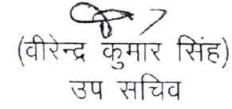 (वीरेन्द्र कुमार सिंह)
उप सचिव